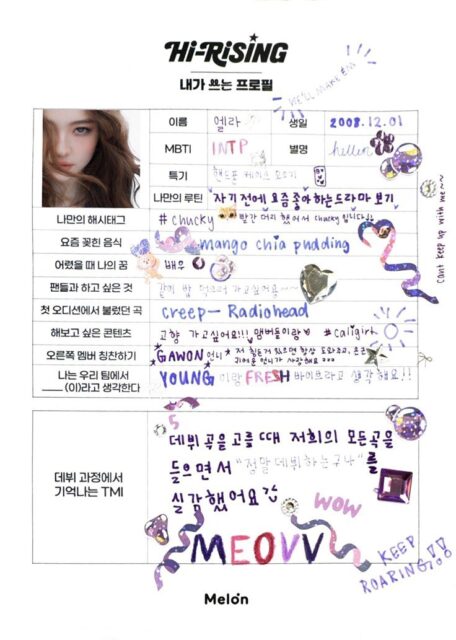 Hi-RiSiNG
내가 쓰는 프로필
WE'LL MAKE EM
이름 엘라 생일 2008.12.01
MBTI INTP 별명 hellen
특기 핸드폰 케이스 모으기
나만의 루틴 자기전에 요즘 좋아하는 드라마 보기
나만의 해시태그 #chucky 빨간 머리 했어서 chucky입니다!!
요즘 꽂힌 음식 mango chia pudding
어렸을 때 나의 꿈 배우
팬들과 하고 싶은 것 같이 밥 먹으러 가고싶어용~~
첫 오디션에서 불렀던 곡 creep - Radiohead
해보고 싶은 콘텐츠 고향 가고싶어요!!! 멤버들이랑♥ #caligirl
오른쪽 멤버 칭찬하기 GAWON 언니 저 힘든거 있으면 항상 도와주고,
귀여운 언니가 사랑해요
나는 우리 팀에서
____ (이)라고 생각한다 YOUNG 이랑 FRESH 바이브라고 생각해요!!
Cant keep up with me~~
데뷔 과정에서
기억나는 TMI
데뷔곡을 고를 때 저희의 모든곡을
들으면서 "정말 데뷔하는구나"를
실감했어요
WOW
MEOVV
KEEP
ROARING!!
Melon